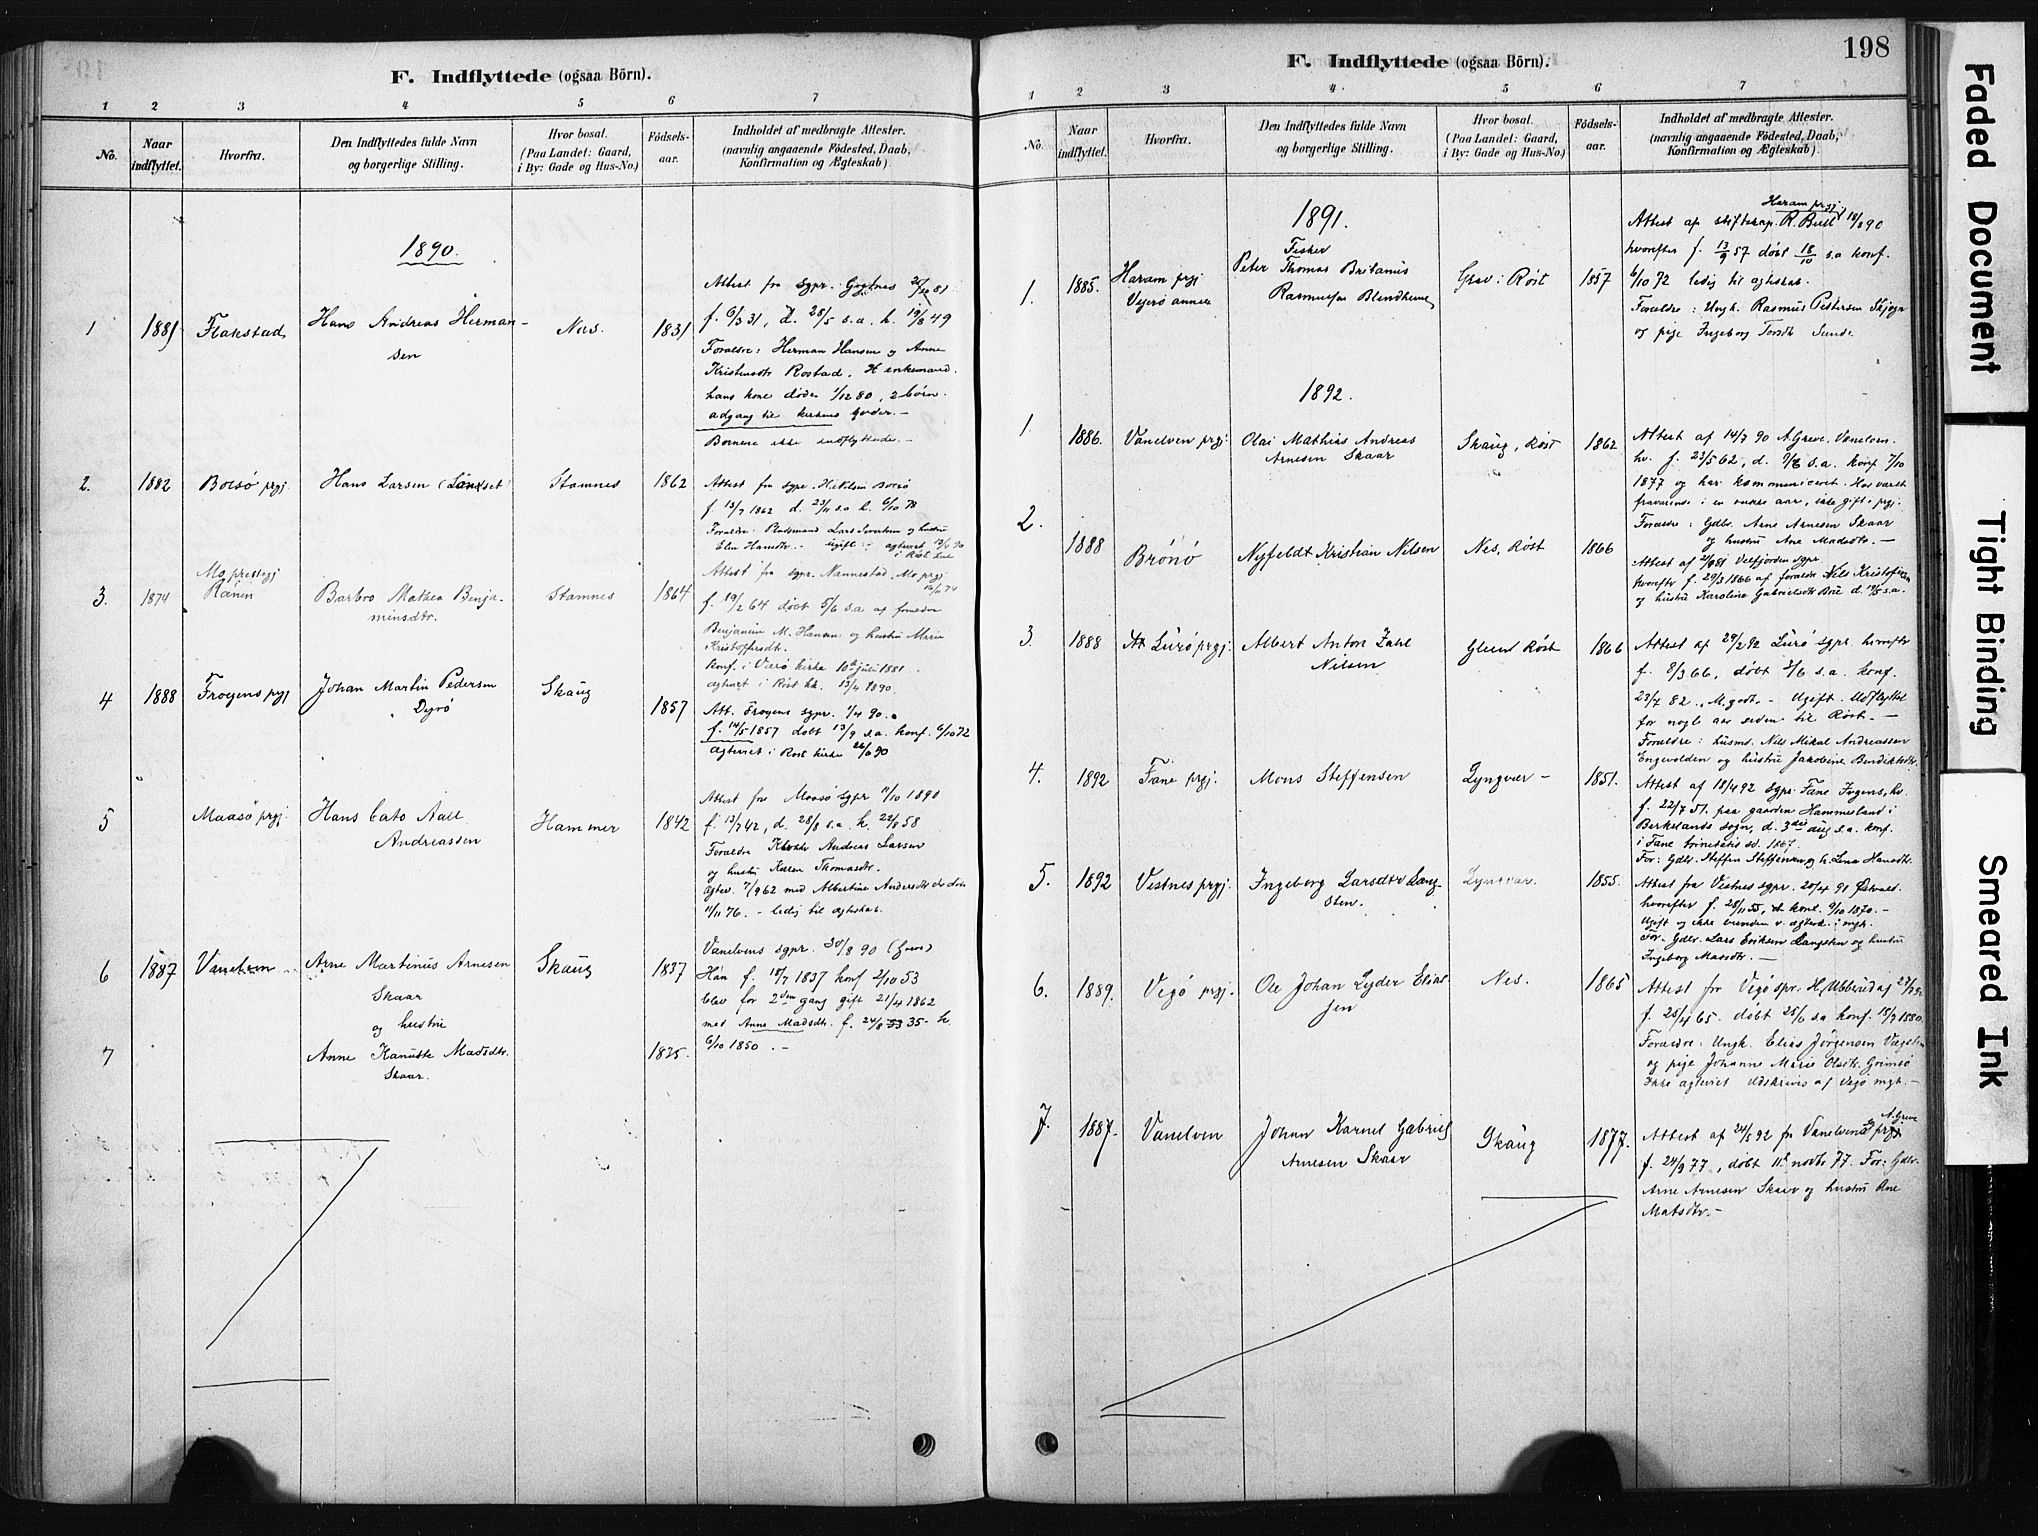 F. Indflyttede (ogsaa Börn).
1 2 3 4 5 6 7
No.
Naar indflyttet.
Hvorfra.
Den Indflyttedes fulde Navn
og borgerlige Stilling.
Hvor bosat.
(Paa Landet: Gaard,
i By: Gade og Hus-No.)
Födsels-
aar.
Indholdet af medbragte Attester.
(navnlig angaaende Födested, Daab,
Konfirmation og Ægteskab).
1890.
1 1881 Flakstad Hans Andreas Herman-
sen
Nes. 1831
Attest fra sgpr.
f. 6/3 31, d. 28/5 s.a. k. 19/8 49
Foraldre: Herman Hansen og Anne
Kristensdtr Rostad. Henkemand.
hans kone døde 1/12 80, 2 børn.
adgang til kirkens goder. -
Børnene ikke indflyttede. -
2. 1882 Boesø prgj. Hans Larsen (Landset) Stamnes 1862
Attest fra sgpr. H. Nilsen Boesø
f 13/7 1862 d. 23/11 s.a k. 6/10 78
ugift
3. 1874 Mo prestegj
Ranen
Barbro Mathea Benja-
minsdtr.
Stamnes 1864
Attest fra sgpr. Nannestad, Mo prgj
f. 19/2 64 døbt 5/6 s.a af foraldre
Benjamin M. Hansen og hustru Marie
Kristoffersdtr.
konf. i Værø kirke 10de juli 1881.
agteviet i Røst kk. 13/4 1890.
4 1888 Froyens prgj Johan Martin Pedersen
Dyrø
Skaug 1857
Att. Froyens sgpr. 1/4 90.
f. 14/5 1857 døbt 13/9 s.a. konf. 6/10 72
agteviet i Røst kirke 26/6 90
5 Maasø prgj. Hans Cato Aall
Andreassen
Hammer 1842
Attest fra Maasø sgpr 11/10 1890
f. 13/7 42, d. 28/8 s.a. k. 22/8 58
Foraldre Andreas Larsen
og hustru Karen Thomasdtr.
Agtev. 7/9 62 med Albertine Andersdtr der døde
11/11 76. - ledig til agteskab.
6 1887 Vanelven Arne Martinus Arnesen
Skaar
og
hustru
Skaug 1837
Vanelvens sgpr. 30/8 90 (Greve)
Han f. 18/7 1837 konf 2/10 53
blev for 2den gang gift 21/4 1862
med Anne Madsdtr. f. 24/8 35 - k.
6/10 1850. -
7 Anne Kanutte Madsdtr.
Skaar.
1825.
198
F. Indflyttede (ogsaa Börn).
1 2 3 4 5 6 7
No.
Naar
indflyttet.
Hvorfra.
Den Indflyttedes fulde Navn
og borgerlige Stilling.
Hvor bosat.
(Paa Landet: Gaard,
i By: Gade og Hus-No.)
Födsels-
aar.
Indholdet af medbragte Attester.
(navnlig angaaende Födested, Daab,
Konfirmation og Ægteskab).
1891.
1. 1885. Haram prgj
Vejerø annex
Fisker
Peter Thomas Britanus
Rasmussen Blendheim
Røst 1857
Haram prgj.
Attest af stiftskap. R. Bust 18/8 90
hvorefter f. 13/9 57 døbt 18/10 s.a konf.
6/10 72 ledig til agteskab.
Foraldre: Ungk. Rasmus Pettersen
og pige Ingeborg Sunde
1892.
1. 1886. Vanelven prgj. Olai Mathias Andreas
Arnesen Skaar
Skaug, Røst 1862
Attest af 14/7 90 A. Greve, Vanelven.
hv. f. 23/5 62, d. 9/6 s.a. konf 7/10
1877 og har kommuniceret. Har varet
fravarende i en rakke aar, ikke gift i prgj.
Foraldre: Gdbr. Arne Arnesen Skaar
og hustru Ane Madsdtr. -
2. 1888 Brønø Nyfeldt Kristian Nilsen Nes, Røst 1866
Velfjorden sgpr.
hvorefter f. 29/3 1866 af foraldre Nils Kristofersen
og hustru Karoline Gabrielsdtr
3. 1888 Lurø prgj. Albert Anton Zahl
Nilsen
Glea Røst 1866
Attest af 29/2 92 Lurø sgpr. hvorefter
f. 8/3 66, døbt 3/6 s.a. konf.
23/7 82. M. godt. - Ugift. Udflyttet
for nogle aar siden til Røst. -
Foraldre: husmd. Nils Mikal Andreassen
Engevolden og hustru Jakobine Bendiktsdtr.
4. 1892 Fane prgj. Mons Steffensen Lyngvær - 1851.
Attest af 18/4 92 sgpr. Fane
f. 22/7 51. paa gaarden Hammesland i
Birkelands sogn, d. 3die aug s.a. konf.
i Fane trinitatis sd. 1867.
For: Gdbr. Steffen Steffensen og h. Lena Hansdtr.
5. 1892 Vestnes prgj. Ingeborg Larsdtr Lang-
sten.
Lyngvær. 1855.
Attest fra Vestnes sgpr. 20/4 91
hvorefter f. 28/11 55, konf. 9/10 1870. -
Ugift og ikke
For. Gdbr. Lars Eriksen Langsten og hustru
Ingeborg Madsdtr. -
6. 1889. Vegø prgj. Ole Johan Lyder Elias-
sen
Nes. 1865
Attest for Vegø spr.
f. 25/4 65. døbt 25/6 s.a konf. 18/7 1880.
Foraldre: Ungk. Elias Jörgensen
og pige Johanne Marie Olsdtr. Grimsø
Ikke agteviet udskrives af Vegø mgh. -
7. 1887. Vanelven Johan Kornel Gabriel
Arnesen Skaar
Skaug 1877.
A. Greve
Attest af 24/5 92 fra Vanelvens prgj
f. 24/9 77, døbt 11te novbr 77. For: Gdbr.
Arne Arnesen Skaar og hustru Ane
Matsdtr. -
Faded Document
Tight Binding
Smeared Ink